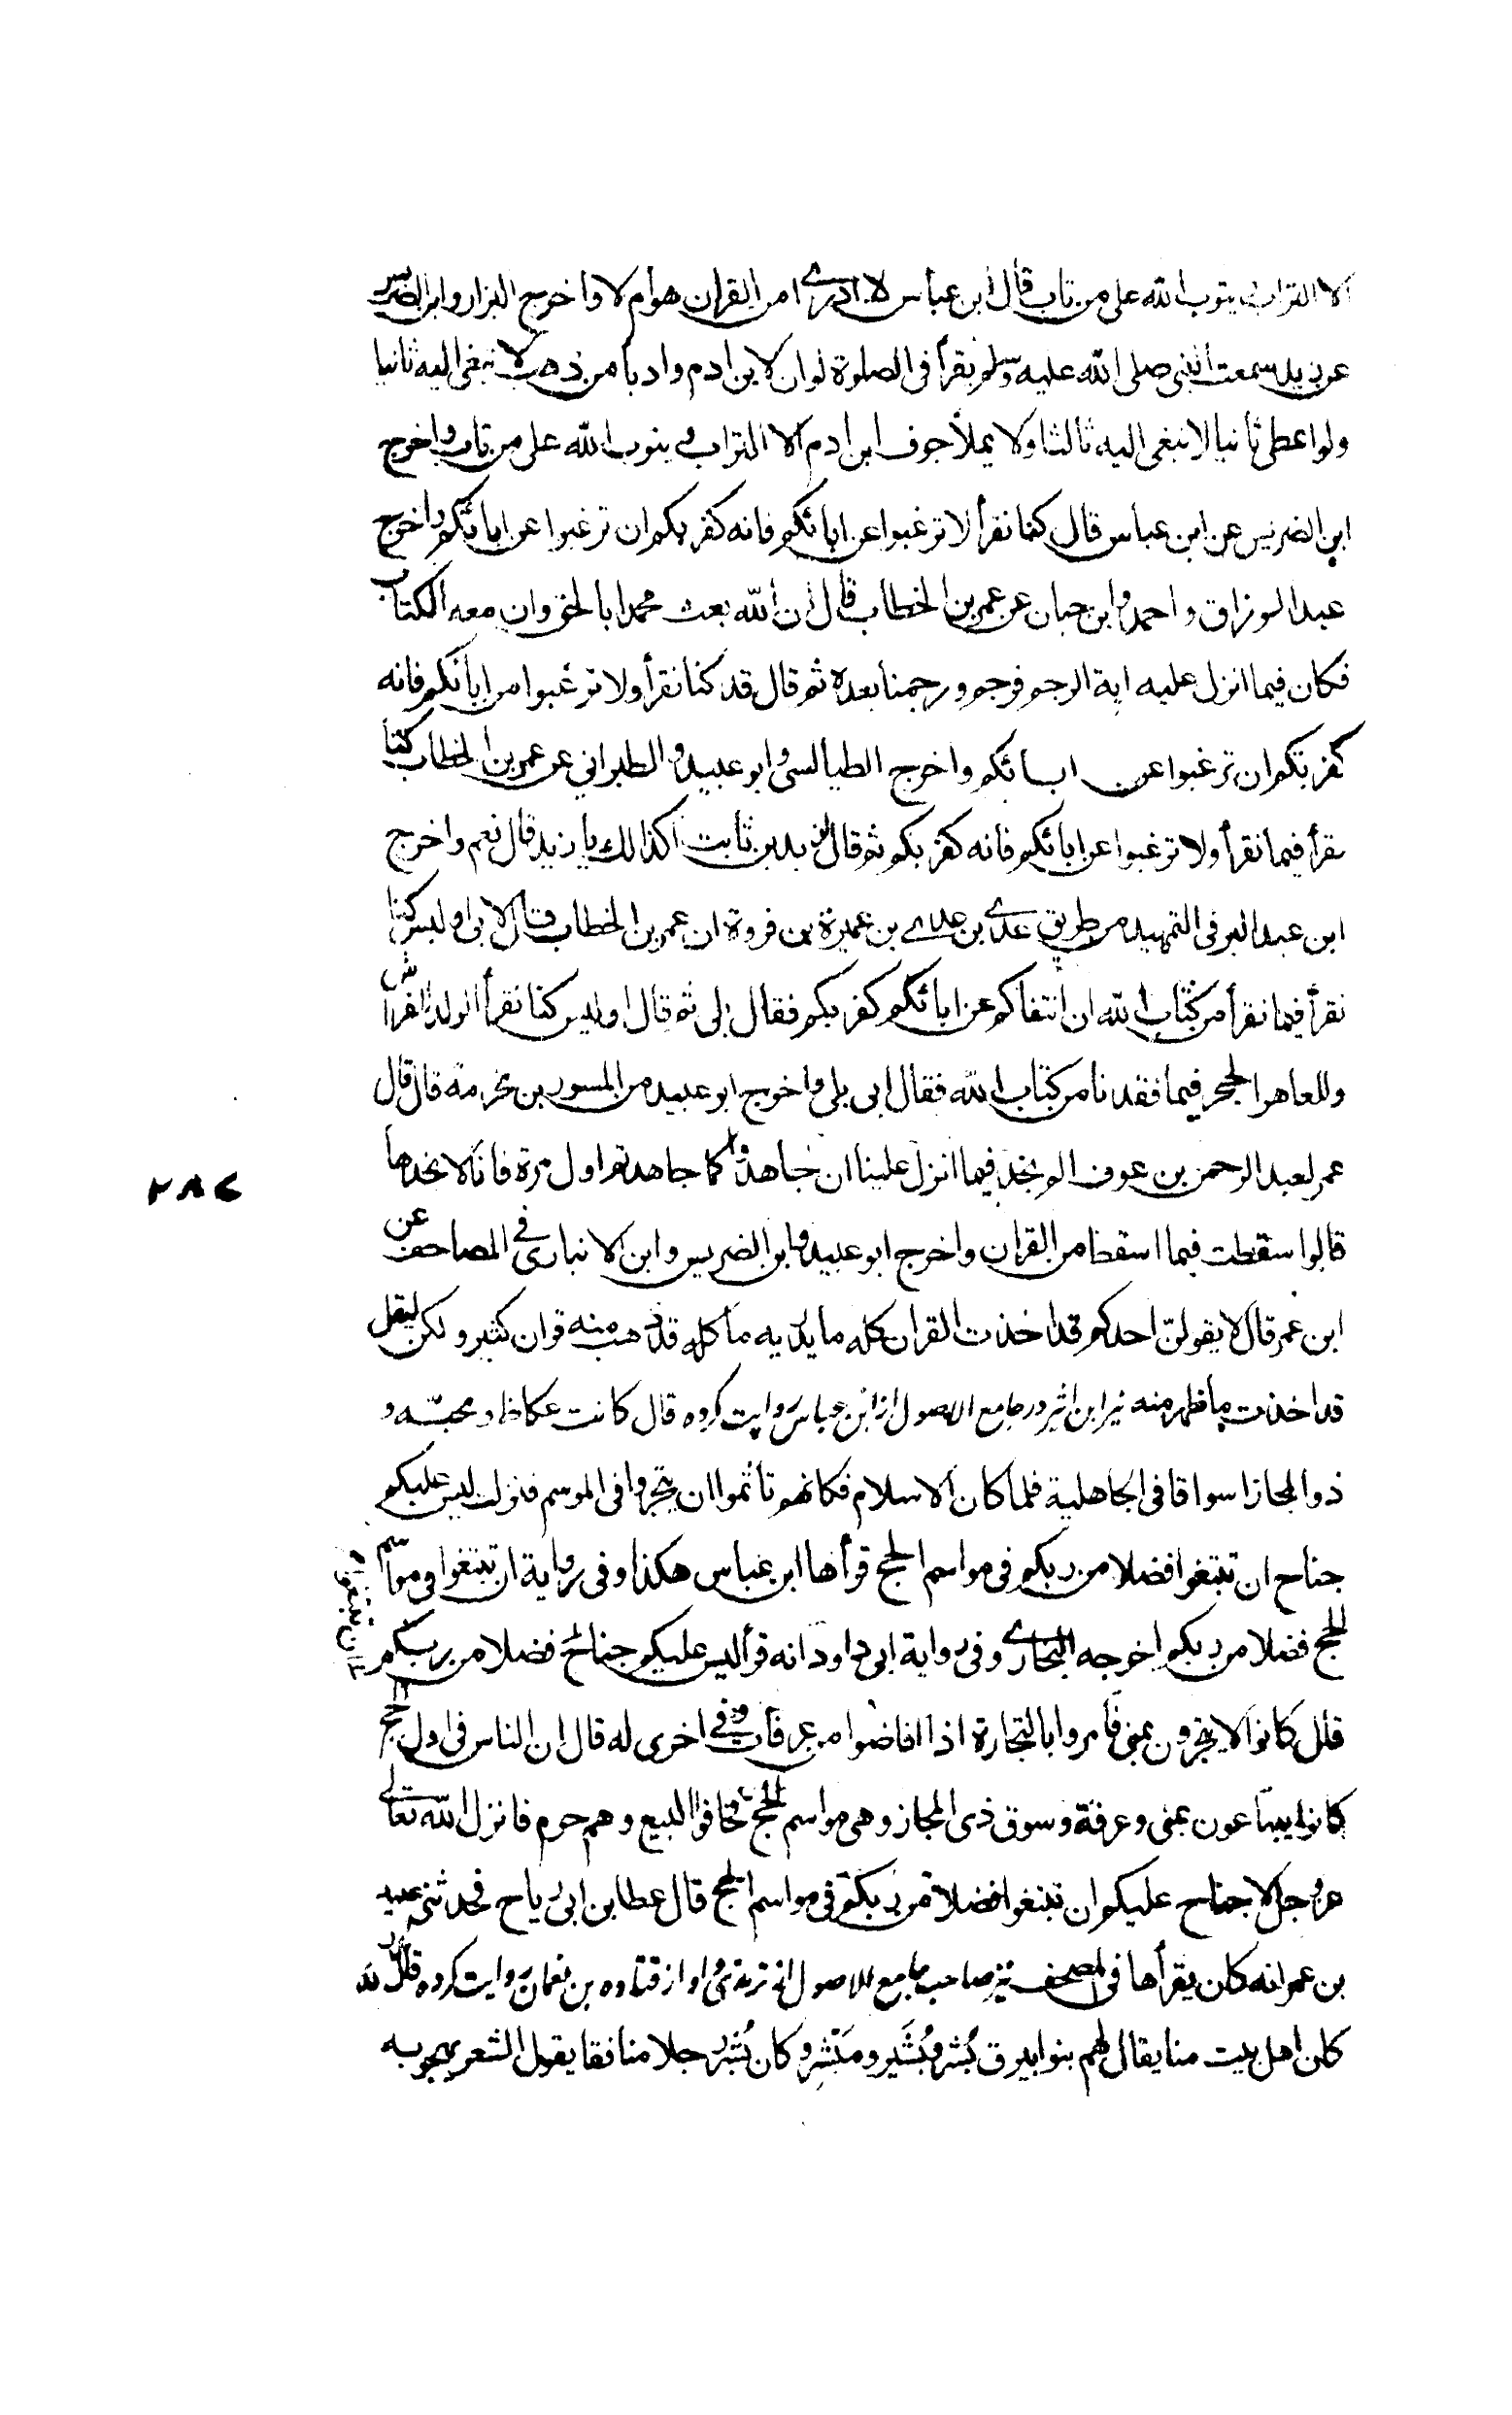 الا التراب و يتوب الله على من تاب قال ابن عباس لا ادرى امن القران هو ام لا واخرج البزار وابن الضريس
عن زيد سمعت النبى صلى الله عليه وسلم يقرأ فى الصلوة لوان لابن ادم واديا من ذهب لا بتغى اليه ثانيا
ولو اعطى ثانيا لا بتغى اليه ثالثا ولا يملأ جوف ابن ادم الا التراب و يتوب الله على من تاب واخرج
ابن الضريس عن ابن عباس قال كنا نقرأ لا ترغبوا عن ابائكم فانه كفر بكم ان ترغبوا عن ابائكم واخرج
عبد الرزاق و احمد وابن حبان عن عمر بن الخطاب قال ان الله بعث محمدا بالحق وان معه الكتاب
فكان فيما انزل عليه اية الرجم فرجم ورجمنا بعده ثم قال قد كنا نقرأ ولا ترغبوا من ابائكم فانه
كفر بكم ان ترغبوا عن ابائكم واخرج الطيالسى و ابو عبيد و الطبرانى عن عمر بن الخطاب كنا
نقرأ فيما نقرأ ولا ترغبوا عن ابائكم فانه كفر بكم ثم قال لزيد بن ثابت اكذالك يا زيد قال نعم واخرج
ابن عبد البر فى التمهيد من طريق عدى بن عدى بن عميرة بن فروة ان عمر بن الخطاب قال لابى اوليس كنا
نقرأ فيما نقرأ من كتاب الله ان انتفاكم عن ابائكم كفر بكم فقال بلى ثم قال اوليس كنا نقرأ الولد للفراش
وللعاهر الحجر فيما فقدنا من كتاب الله فقال ابى بلى واخرج ابو عبيد من المسور بن مخرمة قال قال
عمر لعبد الرحمن بن عوف الم نجد فيما انزل علينا ان جاهدوا كما جاهدتم اول مرة فانا لا نجدها
قالوا سقطت فيما اسقط من القران واخرج ابو عبيد وابن الضريس وابن الانبارى فى المصاحف عن
ابن عمر قال لا يقولن احدكم قد اخذت القران كله ما يدريه ما كله قد ذهب منه قران كثير ولكن ليقل
قد اخذت ما ظهر منه نيز ابن اثير در جامع الاصول از ابن عباس روايت كرده قال كانت عكاظ و مجنّه و
ذو المجاز اسواقا فى الجاهلية فلما كان الاسلام فكانهم تأثموا ان يتجروا فى الموسم فنزلت ليس عليكم
جناح ان تبتغوا فضلا من ربكم فى مواسم الحج قرأها ابن عباس هكذا وفى رواية ان تبتغوا فى مواسم
الحج فضلا من ربكم اخرجه البخارى وفى رواية ابى داود انه قرأ ليس عليكم جناح فضلا من ربكم
ان تبتغوا
قال كانوا لا يتجرون بمنى فأمروا بالتجارة اذا افاضوا من عرفات وفى اخرى له قال ان الناس فى اول الحج
كانوا يبتاعون بمنى وعرفة وسوق ذى المجاز وهى مواسم الحج فخافوا البيع وهم حرم فانزل الله تعالى
عز وجل لا جناح عليكم ان تبتغوا فضلا من ربكم فى مواسم الحج قال عطا بن ابى رياح فحدثنى عبيد
بن عمير انه كان يقرأها فى المصحف نيز صاحب جامع الاصول از ترمذى و او از قتاده بن نعمان روايت كرده قال
كان اهل بيت منا يقال لهم بنو ابيرق بُشر وبُشَير ومبَشّر و كان بُشير رجلا منافقا يقول الشعر يهجو به
٢٨٧